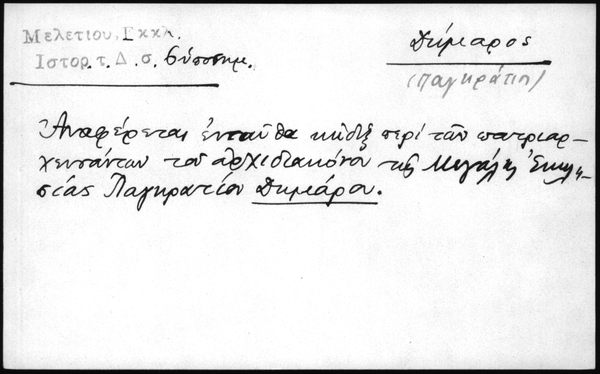 Μελετίου, Εκκλ.
Ιστορ. τ. Δ. σ. 6 ὑποσημ.
Δήμαρος
(Παγκράτιος)
Ἀναφέρεται ἐνταῦθα κῶδιξ περὶ τῶν πατριαρ-
χευσάντων τοῦ ἀρχιδιακόνου τῆς Μεγάλης Ἐκκλη-
σίας Παγκρατίου Δημάρου.